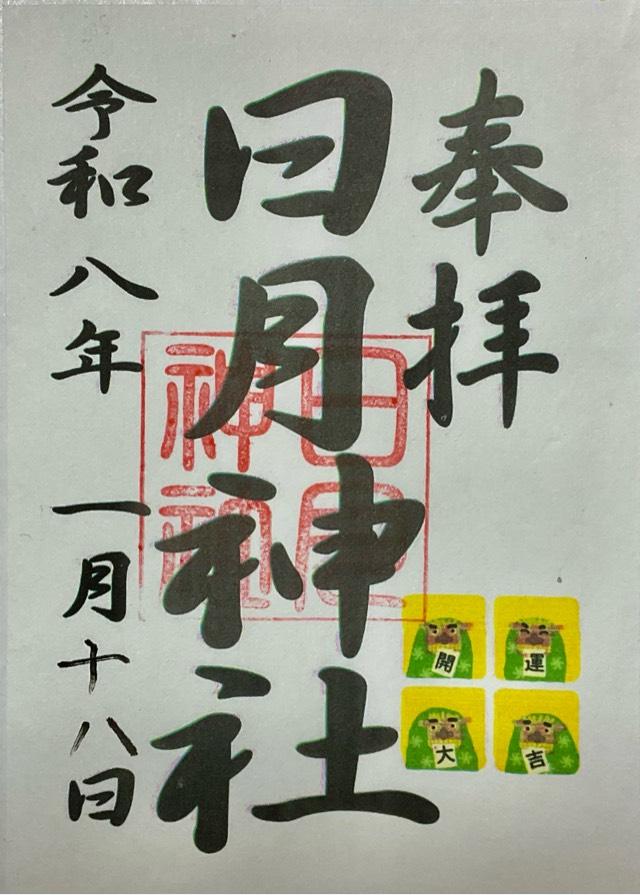 奉拝
日月神社
日月神社
令和八年 一月十八日
開運
大吉